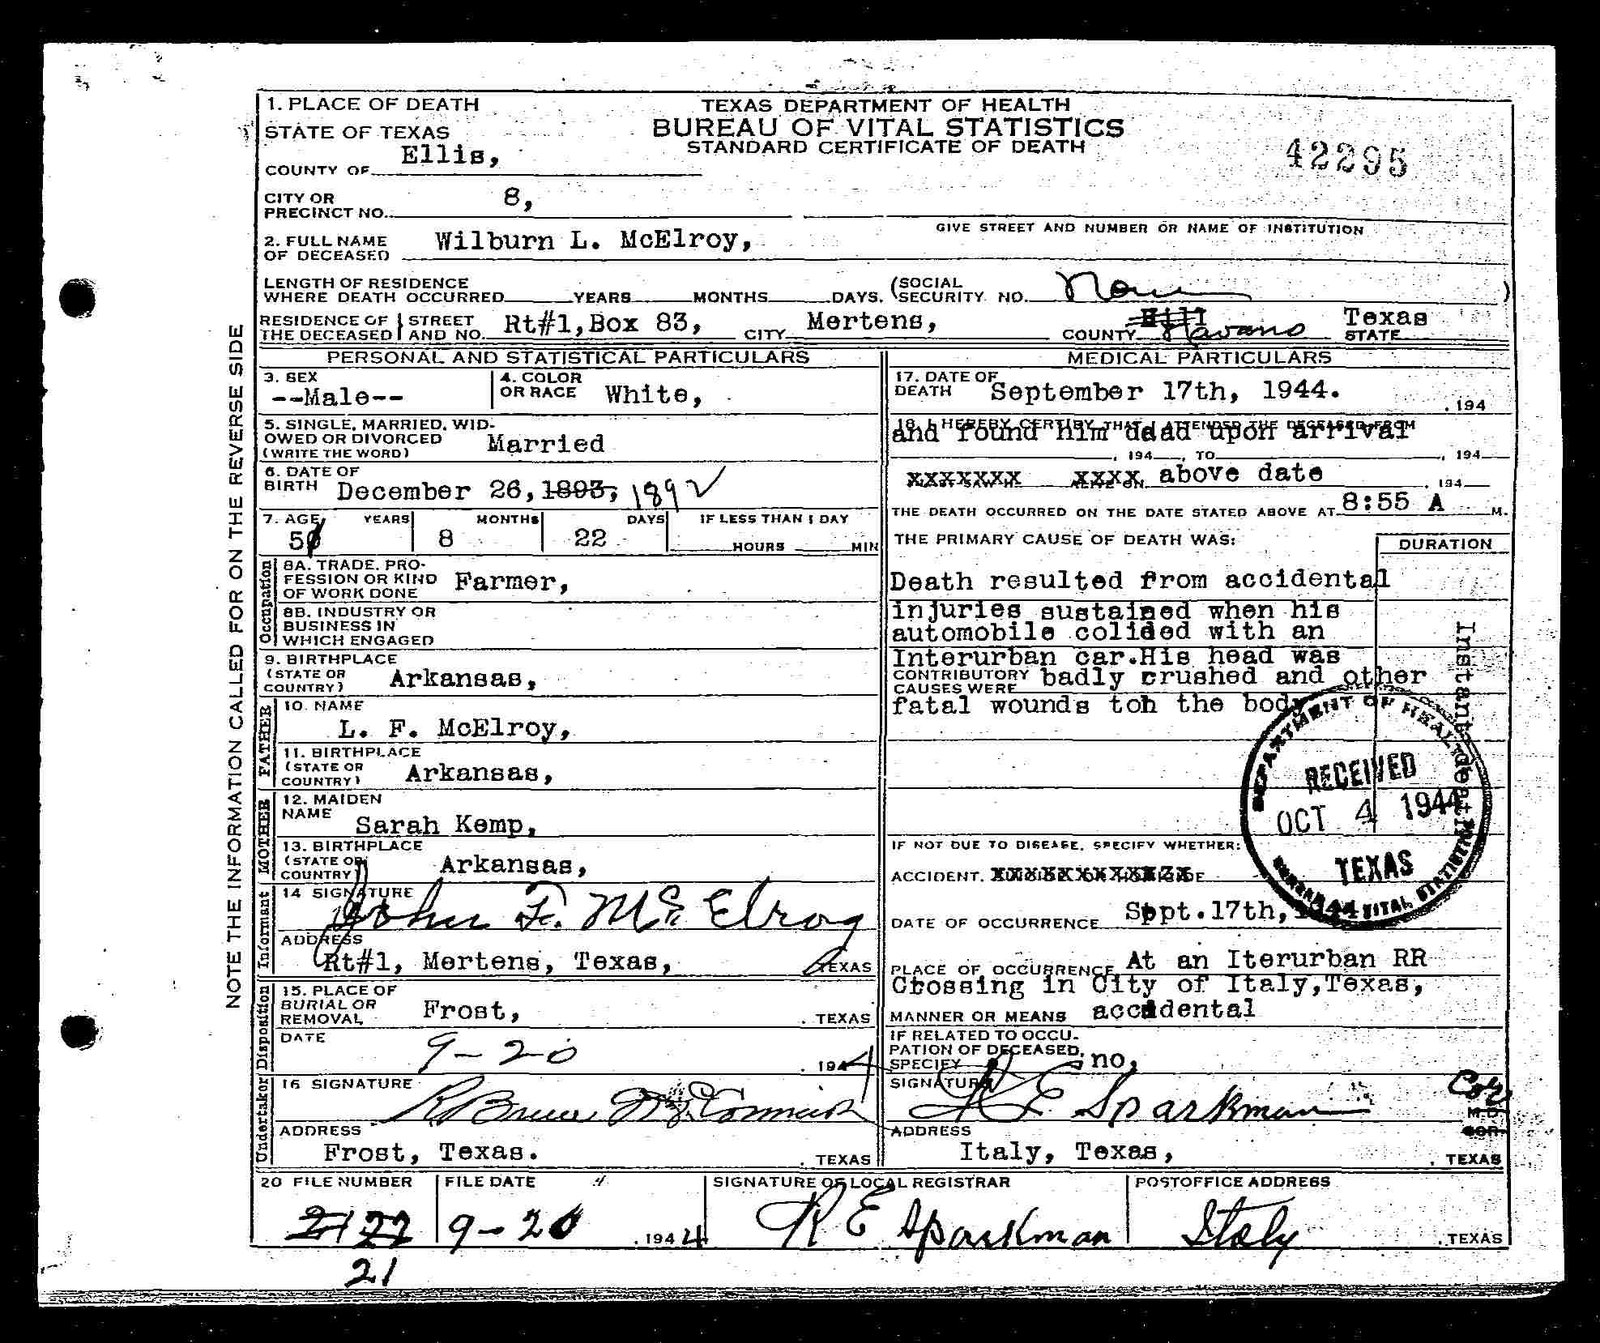 1. PLACE OF DEATH
STATE OF TEXAS
COUNTY OF Ellis,
TEXAS DEPARTMENT OF HEALTH
BUREAU OF VITAL STATISTICS
STANDARD CERTIFICATE OF DEATH
42295
CITY OR
PRECINCT NO. 8,
GIVE STREET AND NUMBER OR NAME OF INSTITUTION
2. FULL NAME
OF DECEASED Wilburn L. McElroy,
LENGTH OF RESIDENCE
WHERE DEATH OCCURRED YEARS MONTHS DAYS. (SOCIAL
SECURITY NO. None )
RESIDENCE OF THE DECEASED STREET AND NO. Rt#1,Box 83, CITY Mertens, COUNTY Hill Navarro Texas STATE
NOTE THE INFORMATION CALLED FOR ON THE REVERSE SIDE
PERSONAL AND STATISTICAL PARTICULARS
3. SEX
--Male--
4. COLOR
OR RACE White,
5. SINGLE, MARRIED, WID-
OWED OR DIVORCED
(WRITE THE WORD) Married
6. DATE OF
BIRTH December 26, 1893, 1892
7. AGE YEARS MONTHS DAYS IF LESS THAN 1 DAY
8 22 HOURS MIN
Occupation
8A. TRADE, PRO-
FESSION OR KIND
OF WORK DONE Farmer,
8B. INDUSTRY OR
BUSINESS IN
WHICH ENGAGED
9. BIRTHPLACE
(STATE OR
COUNTRY) Arkansas,
FATHER
10. NAME
L. F. McElroy,
11. BIRTHPLACE
(STATE OR
COUNTRY) Arkansas,
MOTHER
12. MAIDEN
NAME
Sarah Kemp,
13. BIRTHPLACE
(STATE OR
COUNTRY) Arkansas,
Informant
14 SIGNATURE
John F. McElroy
ADDRESS
Rt#1, Mertens, Texas, TEXAS
Disposition
15. PLACE OF
BURIAL OR
REMOVAL Frost, . TEXAS
DATE 9-20 . 1944
Undertaker
16 SIGNATURE
R Bruce McCormick
ADDRESS
Frost, Texas. . TEXAS
MEDICAL PARTICULARS
17. DATE OF
DEATH September 17th, 1944. . 194
18. I HEREBY CERTIFY THAT I ATTENDED THE DECEASED FROM
and found him dead upon arrival
, 194 , TO , 194
xxxxxxx xxxx above date . 194
THE DEATH OCCURRED ON THE DATE STATED ABOVE AT 8:55 A M.
THE PRIMARY CAUSE OF DEATH WAS: DURATION
Death resulted from accidental
injuries sustained when his
automobile colided with an
Interurban car.His head was
CONTRIBUTORY
CAUSES WERE badly crushed and other
fatal wounds toh the body
DEPARTMENT OF HEALTH
RECEIVED
OCT 4 1944
TEXAS
BUREAU OF VITAL STATISTICS
IF NOT DUE TO DISEASE, SPECIFY WHETHER:
ACCIDENT,
DATE OF OCCURRENCE Sept.17th, 1944
PLACE OF OCCURRENCE At an Iterurban RR
Crossing in City of Italy,Texas,
MANNER OR MEANS accidental
IF RELATED TO OCCU-
PATION OF DECEASED,
SPECIFY no,
SIGNATURE
R E Sparkman Cor
M.D.
ADDRESS
Italy, Texas, . TEXAS
20 FILE NUMBER FILE DATE SIGNATURE OF LOCAL REGISTRAR POSTOFFICE ADDRESS
9-20 . 1944 R E Sparkman Italy . TEXAS
21